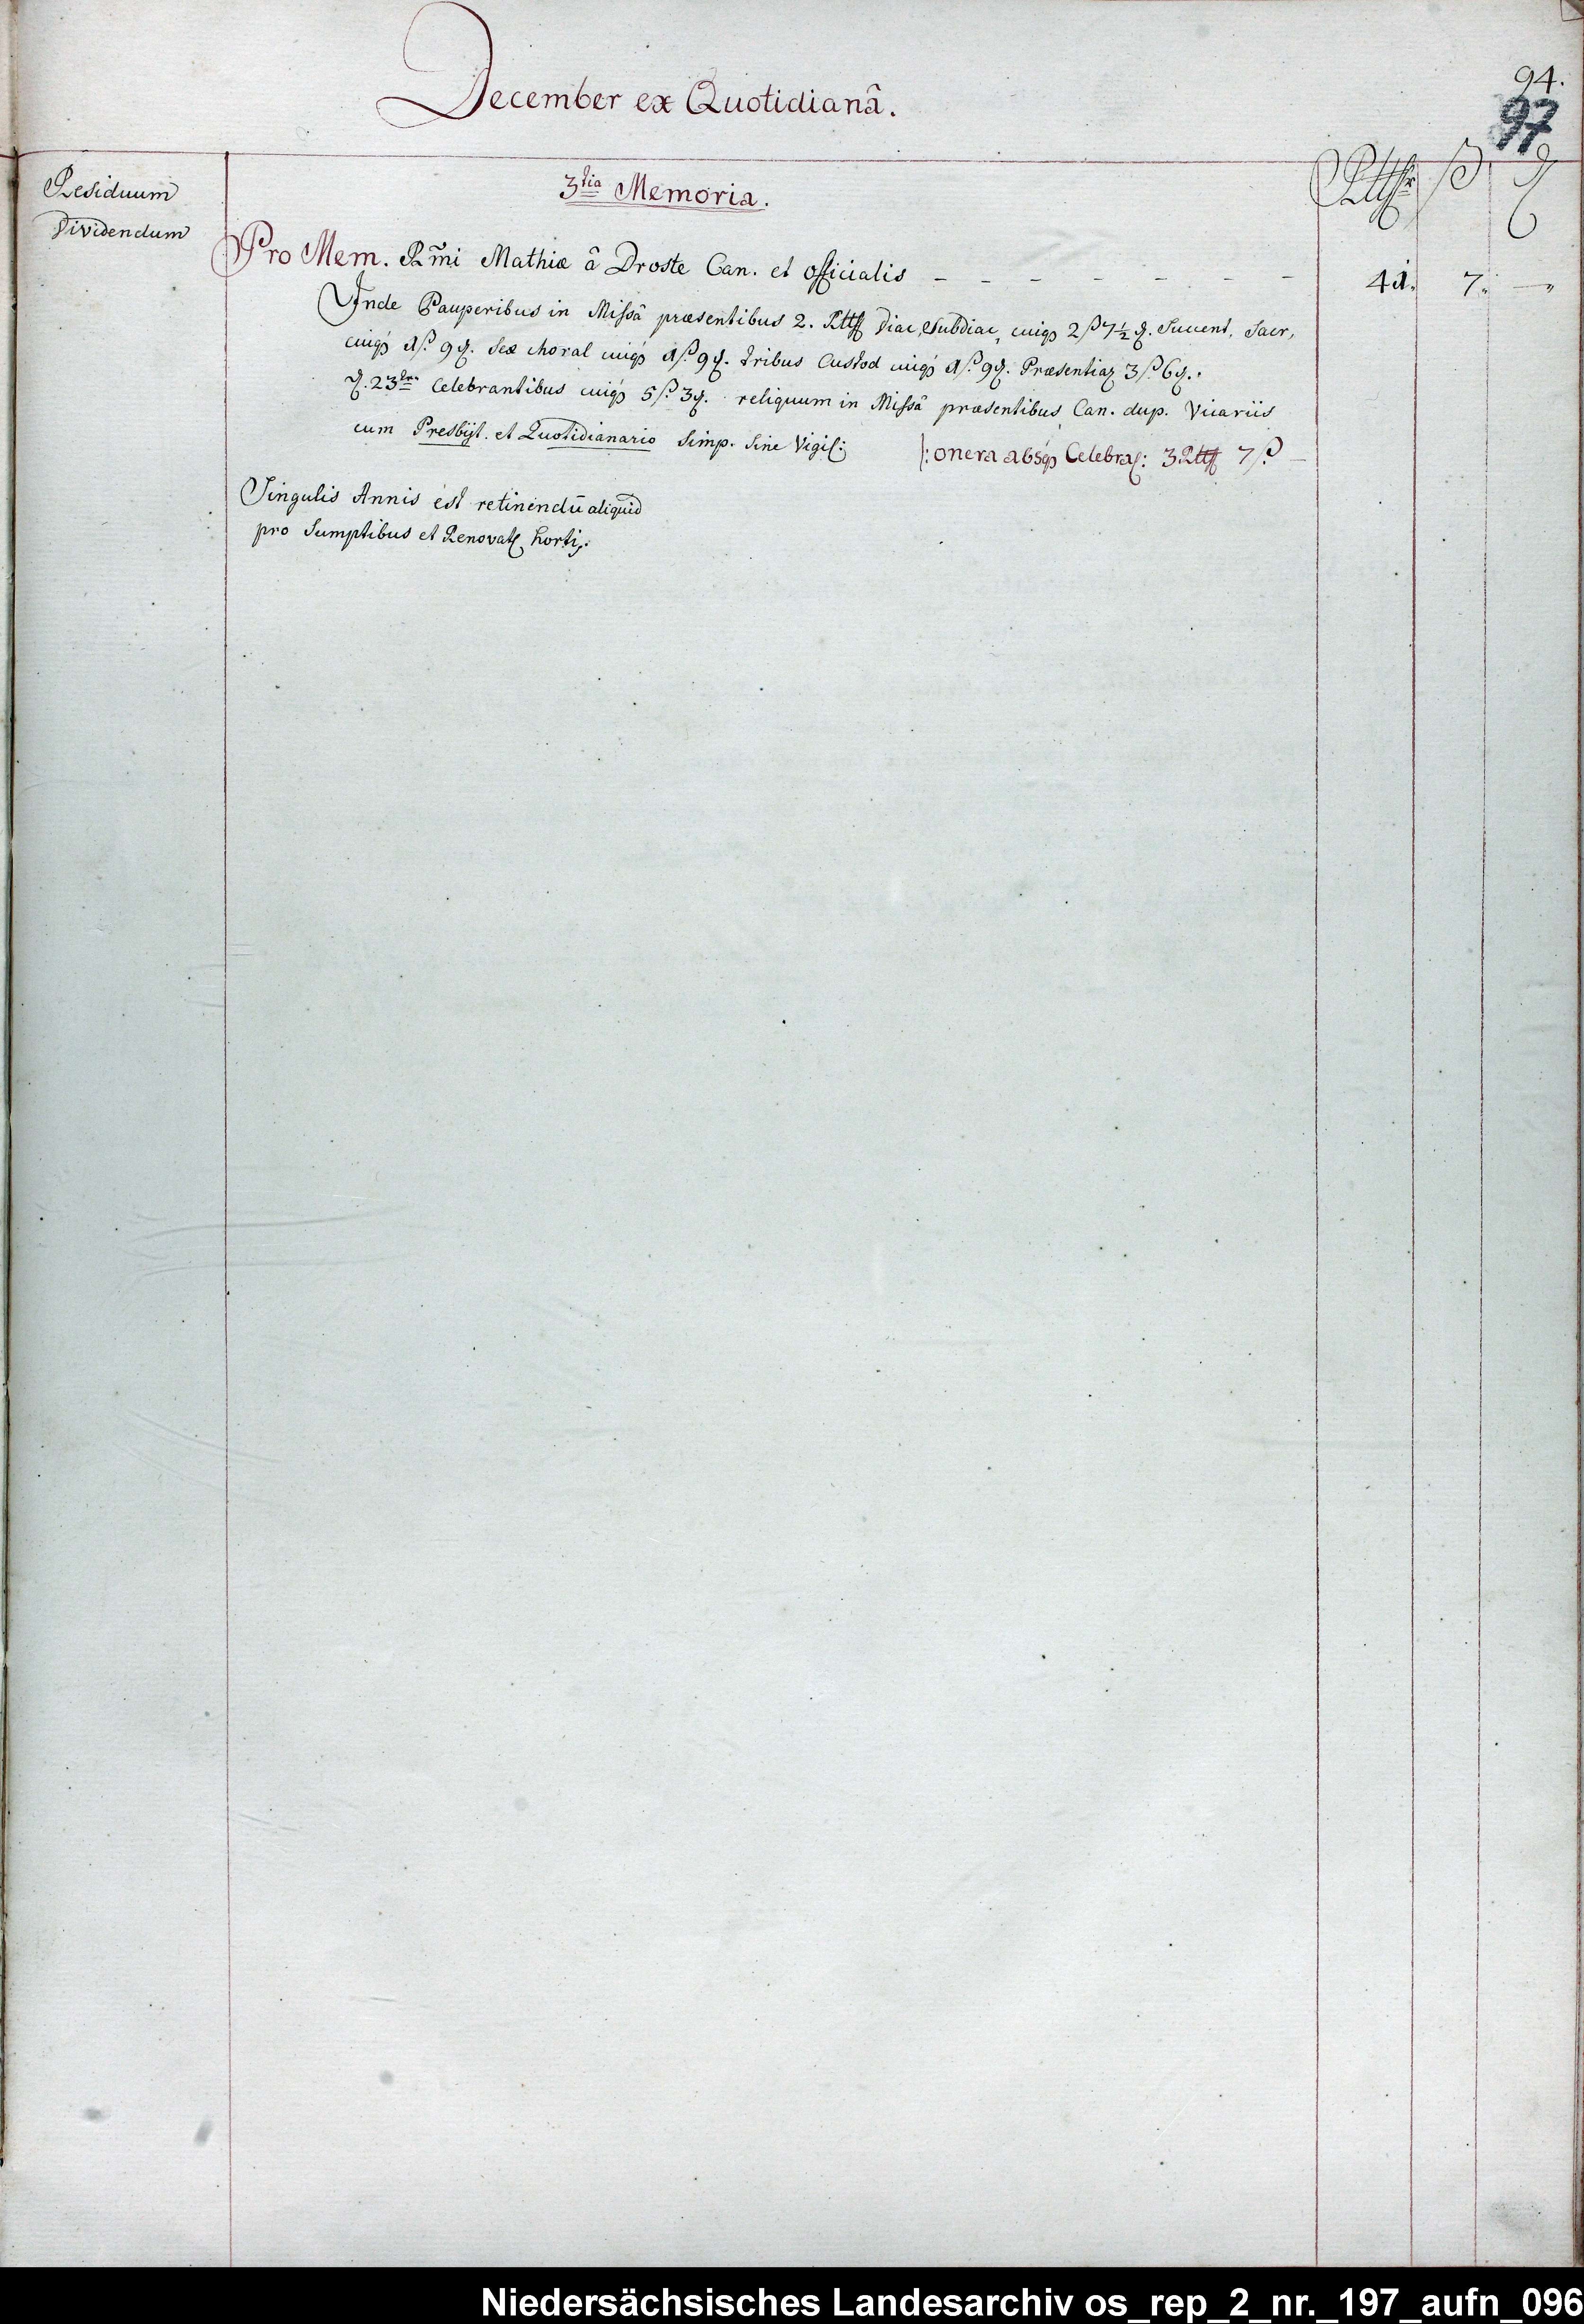 December ex Quotidianâ.
94.
97
Residuum
Dividendum
3tia Memoria.
Rttlr ß ₰
Pro Mem. Rm̃i Mathiæ â Droste Can. et officialis - - - - - - - 41. 7. —
Inde Pauperibus in Missâ præsentibus 2. Rttl Diac, Subdiac, cuiqȝ 2 ß 7½ ₰. Succent, Sacr,
cuiqȝ 1 ß. 9 ₰. Sex choral cuiqȝ 1 ß. 9 ₰. tribus Custod cuiqȝ 1 ß. 9 ₰. Præsentiaꝝ 3 ß. 6 ₰.
23 Celebrantibus cuiqȝ 5 ß. 3 ₰. reliquum in Missâ præsentibus Can. dup. Vicariis
cum Presbijt. et Quotidianario Simp. Sine Vigil:
|: onera absqȝ Celebra: 3 Rttl 7 ß. —
Singulis Annis est retinendū aliquid
pro Sumptibus et Renovat horti.
Niedersächsisches Landesarchiv os_rep_2_nr._197_aufn_096